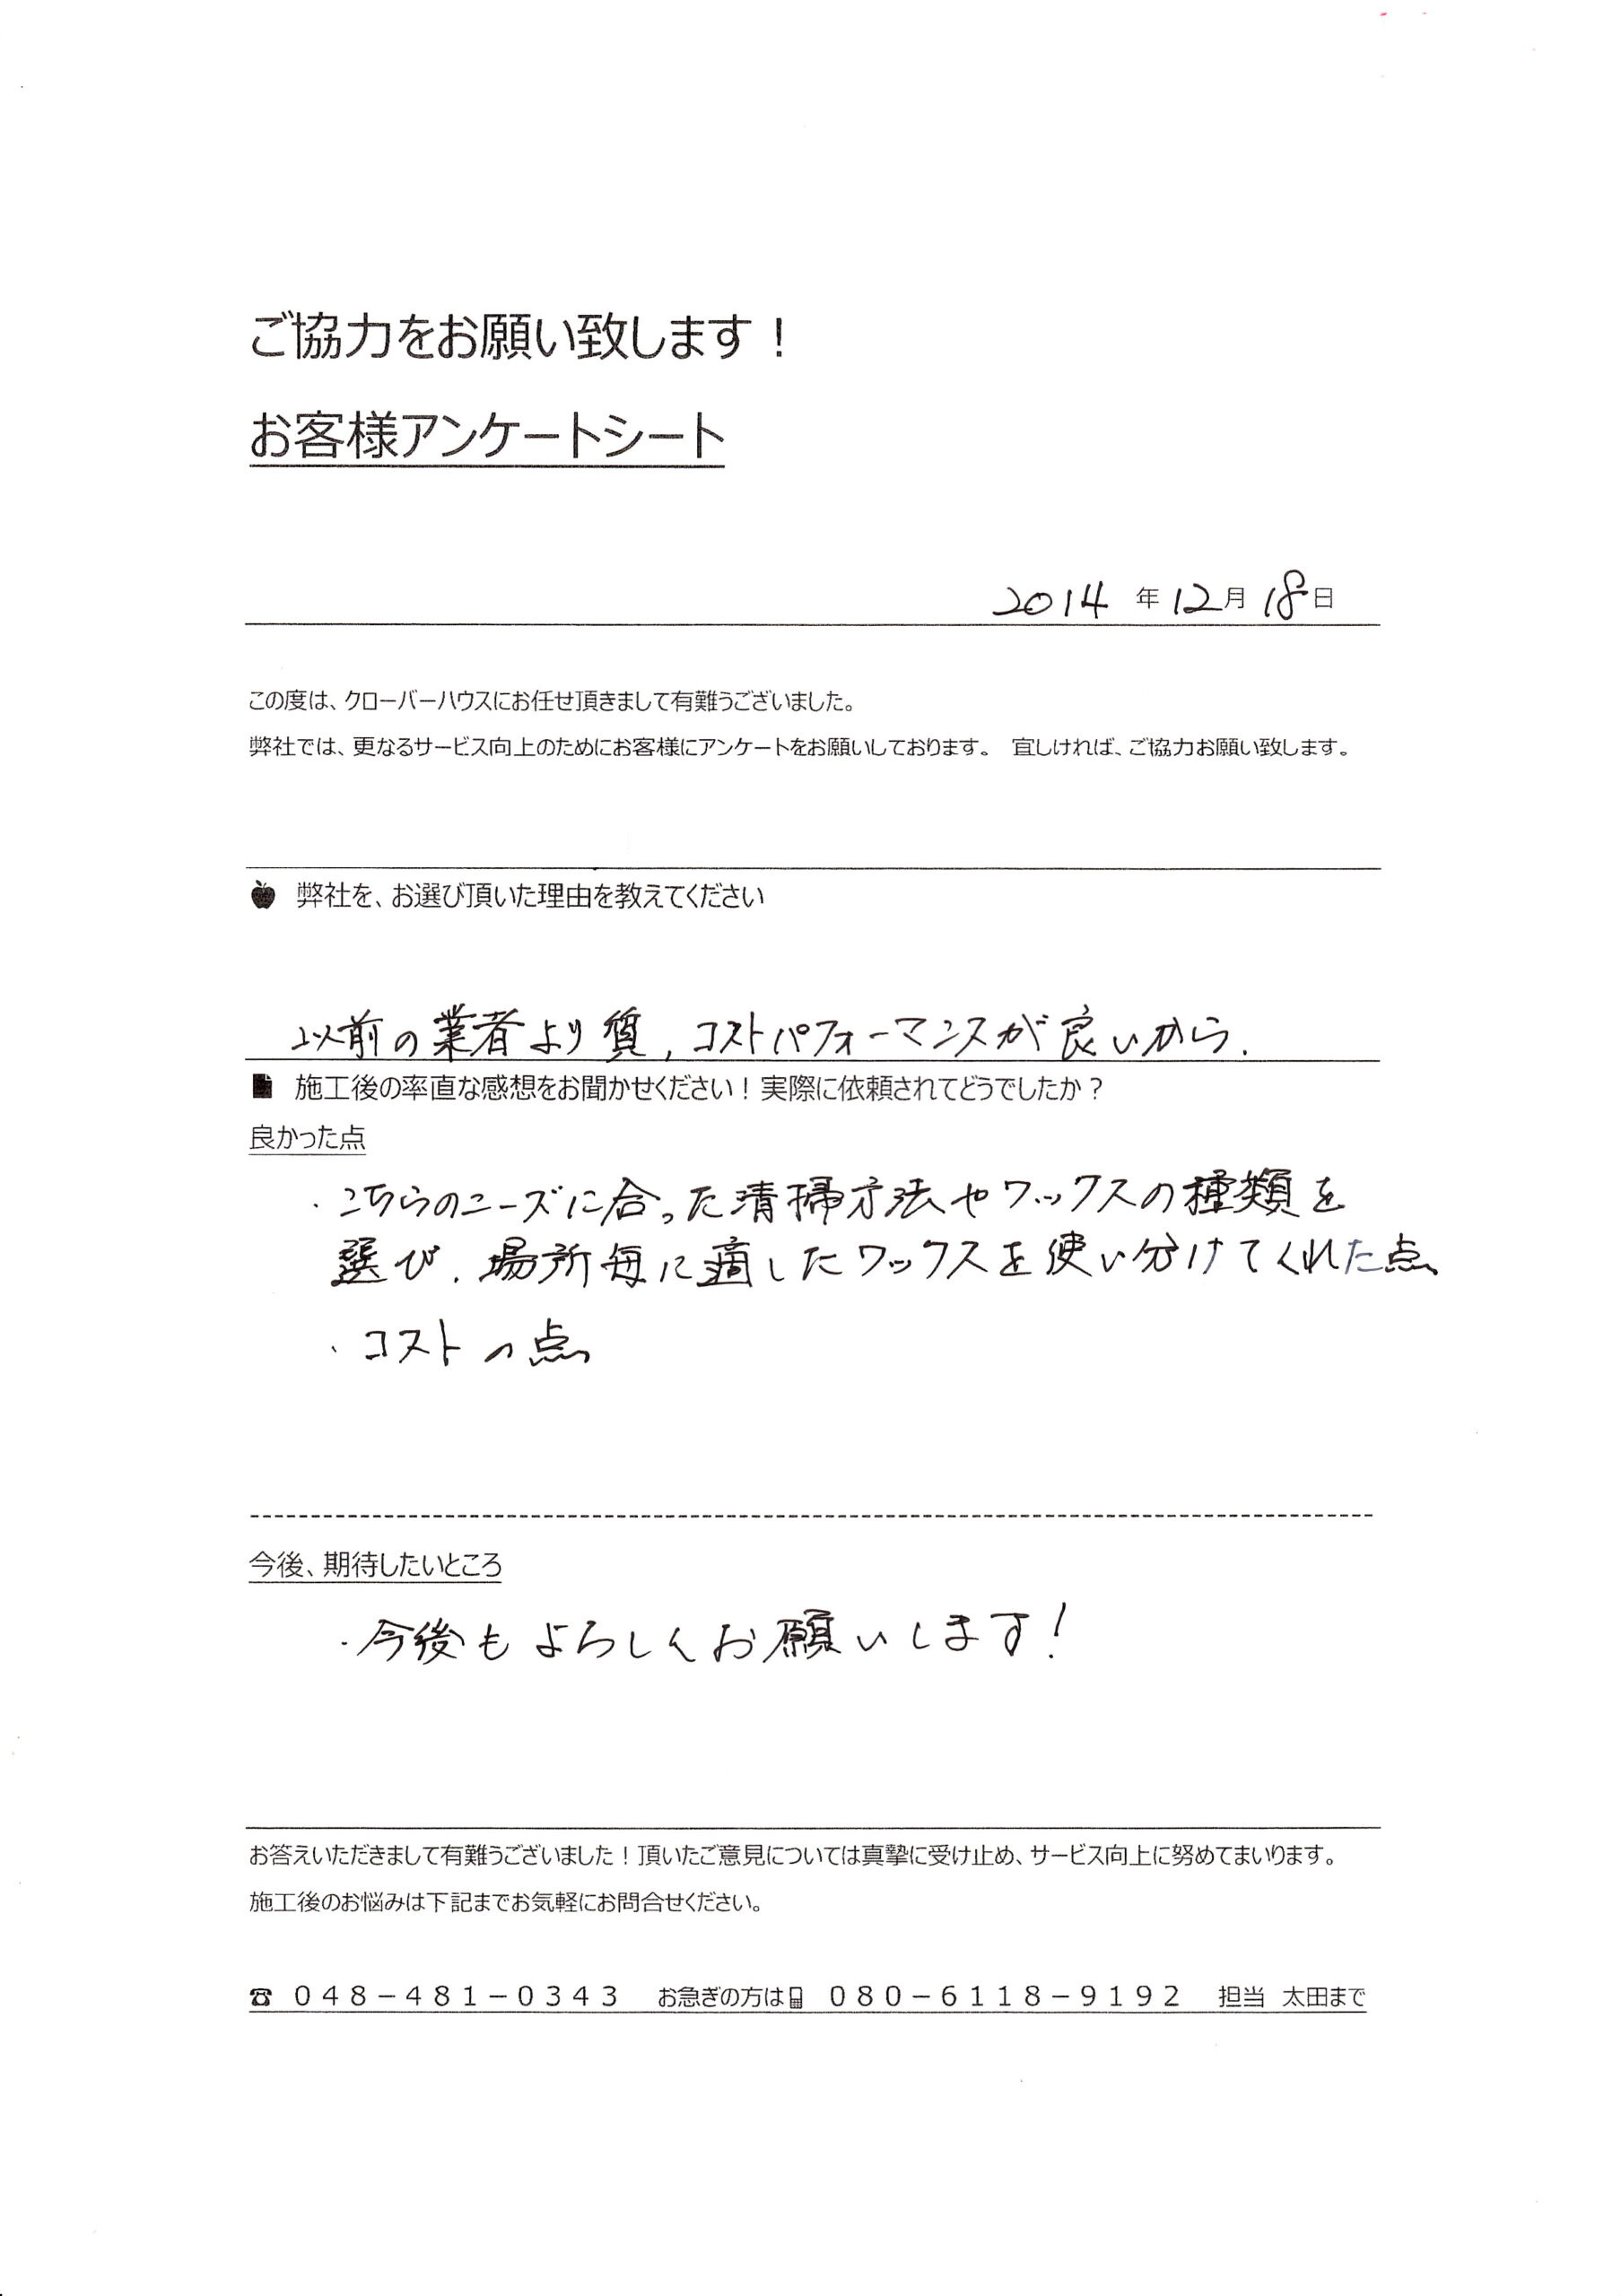 ご協力をお願い致します！
お客様アンケートシート
2014 年 12月 18日
この度は、クローバーハウスにお任せ頂きまして有難うございました。
弊社では、更なるサービス向上のためにお客様にアンケートをお願いしております。 宜しければ、ご協力お願い致します。
弊社を、お選び頂いた理由を教えてください
以前の業者より質，コストパフォーマンスが良いから．
施工後の率直な感想をお聞かせください！実際に依頼されてどうでしたか？
良かった点
・こちらのニーズに合った清掃方法やワックスの種類を
選び．場所毎に適したワックスを使い分けてくれた点
・コストの点
今後、期待したいところ
・今後もよろしくお願いします！
お答えいただきまして有難うございました！頂いたご意見については真摯に受け止め、サービス向上に努めてまいります。
施工後のお悩みは下記までお気軽にお問合せください。
☎ ０４８－４８１－０３４３ お急ぎの方は ０８０－６１１８－９１９２ 担当 太田まで